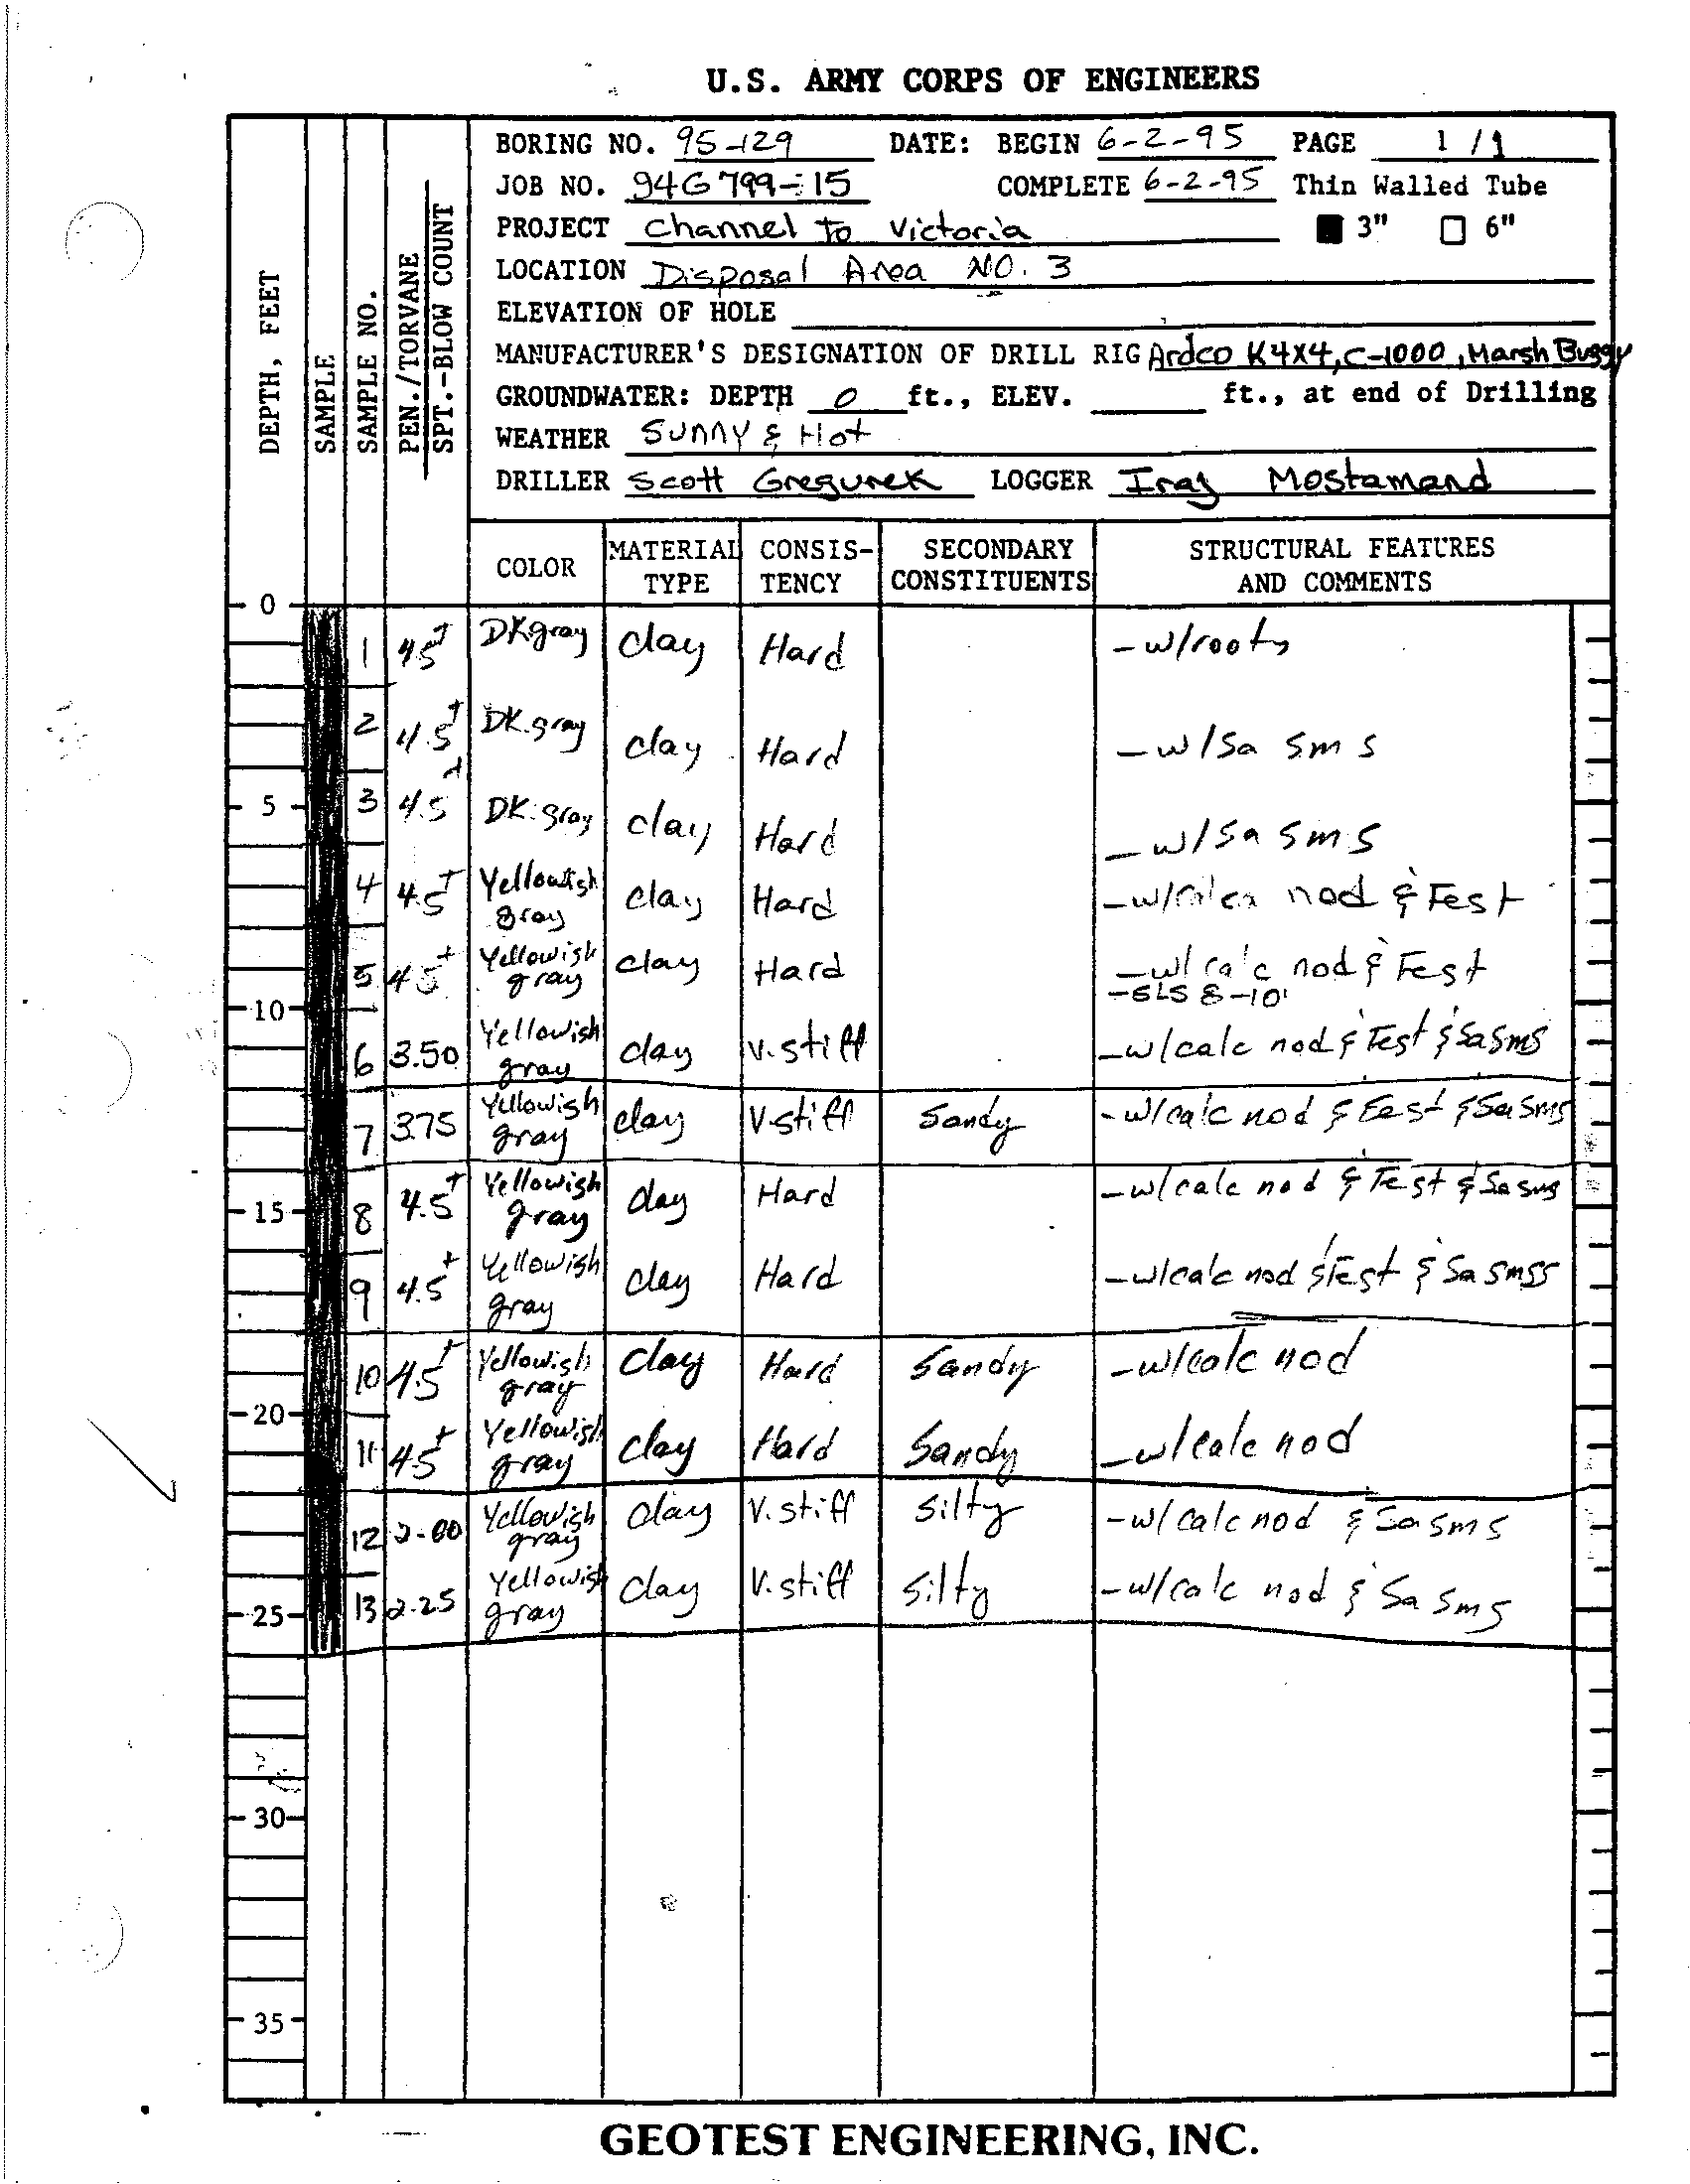 U.S. ARMY CORPS OF ENGINEERS
BORING NO. 95-129 DATE: BEGIN 6-2-95 PAGE 1 / 1
JOB NO. 94G799-15 COMPLETE 6-2-95 Thin Walled Tube
PROJECT Channel to Victoria 3" 6"
LOCATION Disposal Area NO. 3
ELEVATION OF HOLE
MANUFACTURER'S DESIGNATION OF DRILL RIG Ardco K4X4, C-1000, Marsh Buggy
GROUNDWATER: DEPTH 0 ft., ELEV. ft., at end of Drilling
WEATHER Sunny & Hot
DRILLER Scott Gregurek LOGGER Iraj Mostamand
DEPTH, FEET
SAMPLE
SAMPLE NO.
PEN./TORVANE
SPT.-BLOW COUNT
COLOR MATERIAL TYPE CONSIS-TENCY SECONDARY CONSTITUENTS STRUCTURAL FEATURES AND COMMENTS
0
1 4.5+ DK gray clay Hard -w/roots
2 4.5+ DK.gray clay Hard -w/Sa sms
5
3 4.5+ DK.gray clay Hard -w/Sa sms
4 4.5+ Yellowish gray clay Hard nod &
5 4.5+ Yellowish gray clay Hard -w/calc nod &
-SLS 8-10'
10
6 3.50 Yellowish gray clay V.stiff -w/calc nod & & Sa Sms
7 3.75 Yellowish gray clay V.stiff Sandy -w/calc nod & & Sa Sms
8 4.5+ Yellowish gray clay Hard -w/calc nod & & Sa sms
15
9 4.5+ Yellowish gray clay Hard -w/calc nod & & Sa
10 4.5+ Yellowish gray clay Hard Sandy -w/calc nod
20
11 4.5+ Yellowish gray clay Hard Sandy -w/calc nod
12 2.00 Yellowish gray clay V.stiff silty -w/calc nod & Sa sms
13 2.25 Yellowish gray clay V.stiff silty -w/calc nod & Sa sms
25
30
35
GEOTEST ENGINEERING, INC.